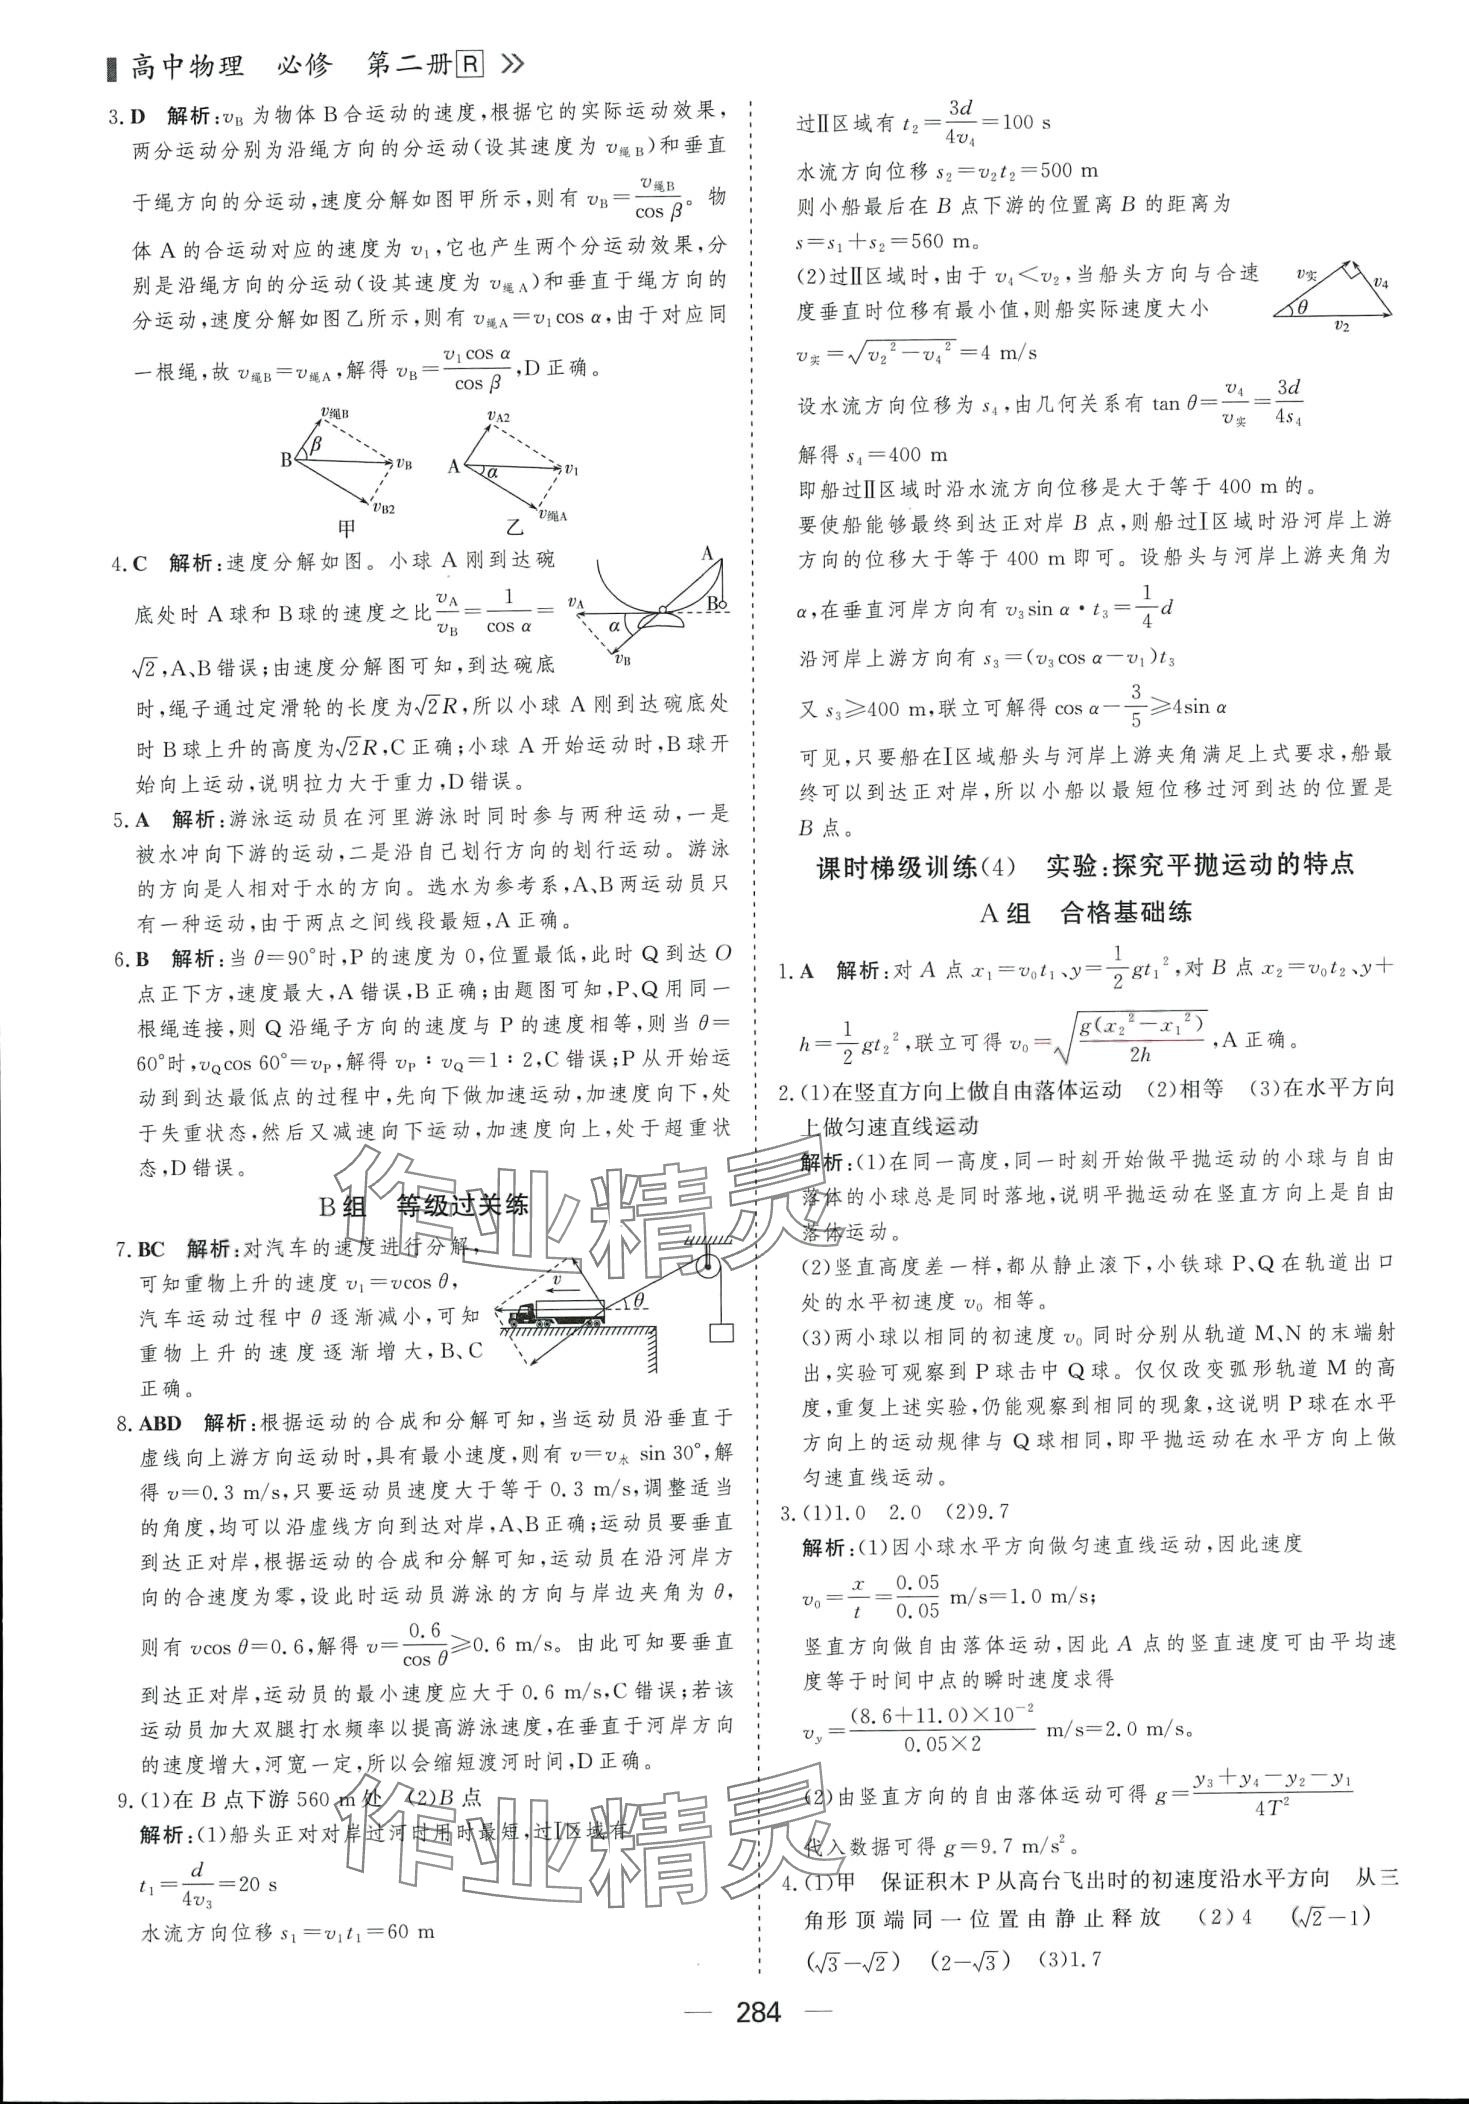 高中物理　必修　第二册R
3. D　解析:v_B 为物体 B 合运动的速度,根据它的实际运动效果,
两分运动分别为沿绳方向的分运动(设其速度为 v_绳B)和垂直
于绳方向的分运动,速度分解如图甲所示,则有 v_B=v_绳B/cos β。物
体 A 的合运动对应的速度为 v₁,它也产生两个分运动效果,分
别是沿绳方向的分运动(设其速度为 v_绳A)和垂直于绳方向的
分运动,速度分解如图乙所示,则有 v_绳A=v₁cos α,由于对应同
一根绳,故 v_绳B=v_绳A,解得 v_B=v₁cos α/cos β,D 正确。
v_绳B
β
B
v_B
v_B2
甲
v_A2
A
α
v₁
v_绳A
乙
4. C　解析:速度分解如图。小球 A 刚到达碗
底处时 A 球和 B 球的速度之比 v_A/v_B=1/cos α=
√2,A、B 错误;由速度分解图可知,到达碗底
时,绳子通过定滑轮的长度为√2R,所以小球 A 刚到达碗底处
时 B 球上升的高度为√2R,C 正确;小球 A 开始运动时,B 球开
始向上运动,说明拉力大于重力,D 错误。
A
B
v_A
α
v_B
5. A　解析:游泳运动员在河里游泳时同时参与两种运动,一是
被水冲向下游的运动,二是沿自己划行方向的划行运动。游泳
的方向是人相对于水的方向。选水为参考系,A、B 两运动员只
有一种运动,由于两点之间线段最短,A 正确。
6. B　解析:当 θ=90°时,P 的速度为 0,位置最低,此时 Q 到达 O
点正下方,速度最大,A 错误,B 正确;由题图可知,P、Q 用同一
根绳连接,则 Q 沿绳子方向的速度与 P 的速度相等,则当 θ=
60°时,v_Q cos 60°=v_P,解得 v_P∶v_Q=1∶2,C 错误;P 从开始运
动到到达最低点的过程中,先向下做加速运动,加速度向下,处
于失重状态,然后又减速向下运动,加速度向上,处于超重状
态,D 错误。
B 组　等级过关练
7. BC　解析:对汽车的速度进行分解,
可知重物上升的速度 v₁=vcos θ,
汽车运动过程中 θ 逐渐减小,可知
重物上升的速度逐渐增大,B、C
正确。
v
θ
8. ABD　解析:根据运动的合成和分解可知,当运动员沿垂直于
虚线向上游方向运动时,具有最小速度,则有 v=v_水 sin 30°,解
得 v=0.3 m/s,只要运动员速度大于等于 0.3 m/s,调整适当
的角度,均可以沿虚线方向到达对岸,A、B 正确;运动员要垂直
到达正对岸,根据运动的合成和分解可知,运动员在沿河岸方
向的合速度为零,设此时运动员游泳的方向与岸边夹角为 θ,
则有 vcos θ=0.6,解得 v=0.6/cos θ≥0.6 m/s。由此可知要垂直
到达正对岸,运动员的最小速度应大于 0.6 m/s,C 错误;若该
运动员加大双腿打水频率以提高游泳速度,在垂直于河岸方向
的速度增大,河宽一定,所以会缩短渡河时间,D 正确。
9. (1)在 B 点下游 560 m 处　(2)B 点
解析:(1)船头正对对岸过河时用时最短,过Ⅰ区域有
t₁=d/4v₃=20 s
水流方向位移 s₁=v₁t₁=60 m
过Ⅱ区域有 t₂=3d/4v₄=100 s
水流方向位移 s₂=v₂t₂=500 m
则小船最后在 B 点下游的位置离 B 的距离为
s=s₁+s₂=560 m。
(2)过Ⅱ区域时,由于 v₄<v₂,当船头方向与合速
度垂直时位移有最小值,则船实际速度大小
v_实=√(v₂²−v₄²)=4 m/s
v_实
v₄
θ
v₂
设水流方向位移为 s₄,由几何关系有 tan θ=v₄/v_实=3d/4s₄
解得 s₄=400 m
即船过Ⅱ区域时沿水流方向位移是大于等于 400 m 的。
要使船能够最终到达正对岸 B 点,则船过Ⅰ区域时沿河岸上游
方向的位移大于等于 400 m 即可。设船头与河岸上游夹角为
α,在垂直河岸方向有 v₃sin α·t₃=1/4 d
沿河岸上游方向有 s₃=(v₃cos α−v₁)t₃
又 s₃≥400 m,联立可解得 cos α−3/5≥4sin α
可见,只要船在Ⅰ区域船头与河岸上游夹角满足上式要求,船最
终可以到达正对岸,所以小船以最短位移过河到达的位置是
B 点。
课时梯级训练(4)　实验:探究平抛运动的特点
A 组　合格基础练
1. A　解析:对 A 点 x₁=v₀t₁、y=1/2 gt₁²,对 B 点 x₂=v₀t₂、y+
h=1/2 gt₂²,联立可得 v₀=√(g(x₂²−x₁²)/2h),A 正确。
2. (1)在竖直方向上做自由落体运动　(2)相等　(3)在水平方向
上做匀速直线运动
解析:(1)在同一高度,同一时刻开始做平抛运动的小球与自由
落体的小球总是同时落地,说明平抛运动在竖直方向上是自由
落体运动。
(2)竖直高度差一样,都从静止滚下,小铁球 P、Q 在轨道出口
处的水平初速度 v₀ 相等。
(3)两小球以相同的初速度 v₀ 同时分别从轨道 M、N 的末端射
出,实验可观察到 P 球击中 Q 球。仅仅改变弧形轨道 M 的高
度,重复上述实验,仍能观察到相同的现象,这说明 P 球在水平
方向上的运动规律与 Q 球相同,即平抛运动在水平方向上做
匀速直线运动。
3. (1)1.0　2.0　(2)9.7
解析:(1)因小球水平方向做匀速直线运动,因此速度
v₀=x/t=0.05/0.05 m/s=1.0 m/s;
竖直方向做自由落体运动,因此 A 点的竖直速度可由平均速
度等于时间中点的瞬时速度求得
v_y=(8.6+11.0)×10⁻²/0.05×2 m/s=2.0 m/s。
(2)由竖直方向的自由落体运动可得 g=(y₃+y₄−y₂−y₁)/4T²
代入数据可得 g=9.7 m/s²。
4. (1)甲　保证积木 P 从高台飞出时的初速度沿水平方向　从三
角形顶端同一位置由静止释放　(2)4　(√2−1)
(√3−√2)　(2−√3)　(3)1.7
作业精灵
作业精灵
— 284 —